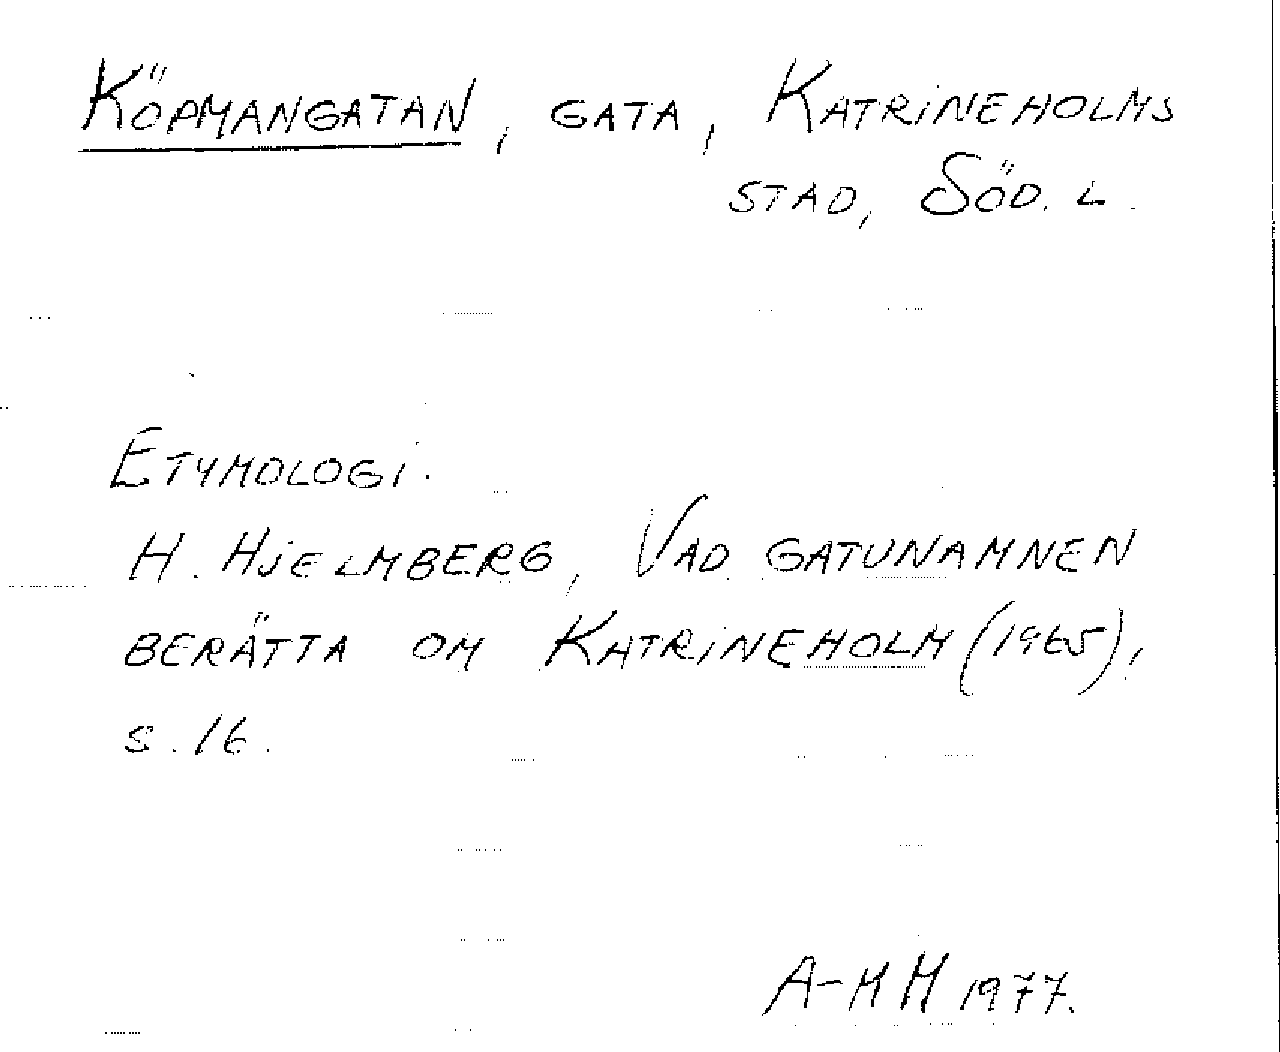 KÖPMANGATAN, GATA, KATRINEHOLMS
STAD, SÖD. L.
ETYMOLOGI.
H. HJELMBERG, VAD GATUNAMNEN
BERÄTTA OM KATRINEHOLM (1965),
S. 16.
A-MH 1977.